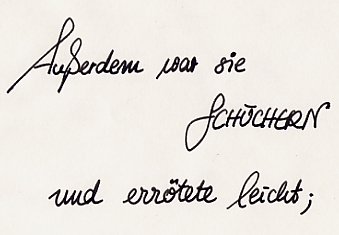 Außerdem war sie
SCHÜCHERN
und errötete leicht;